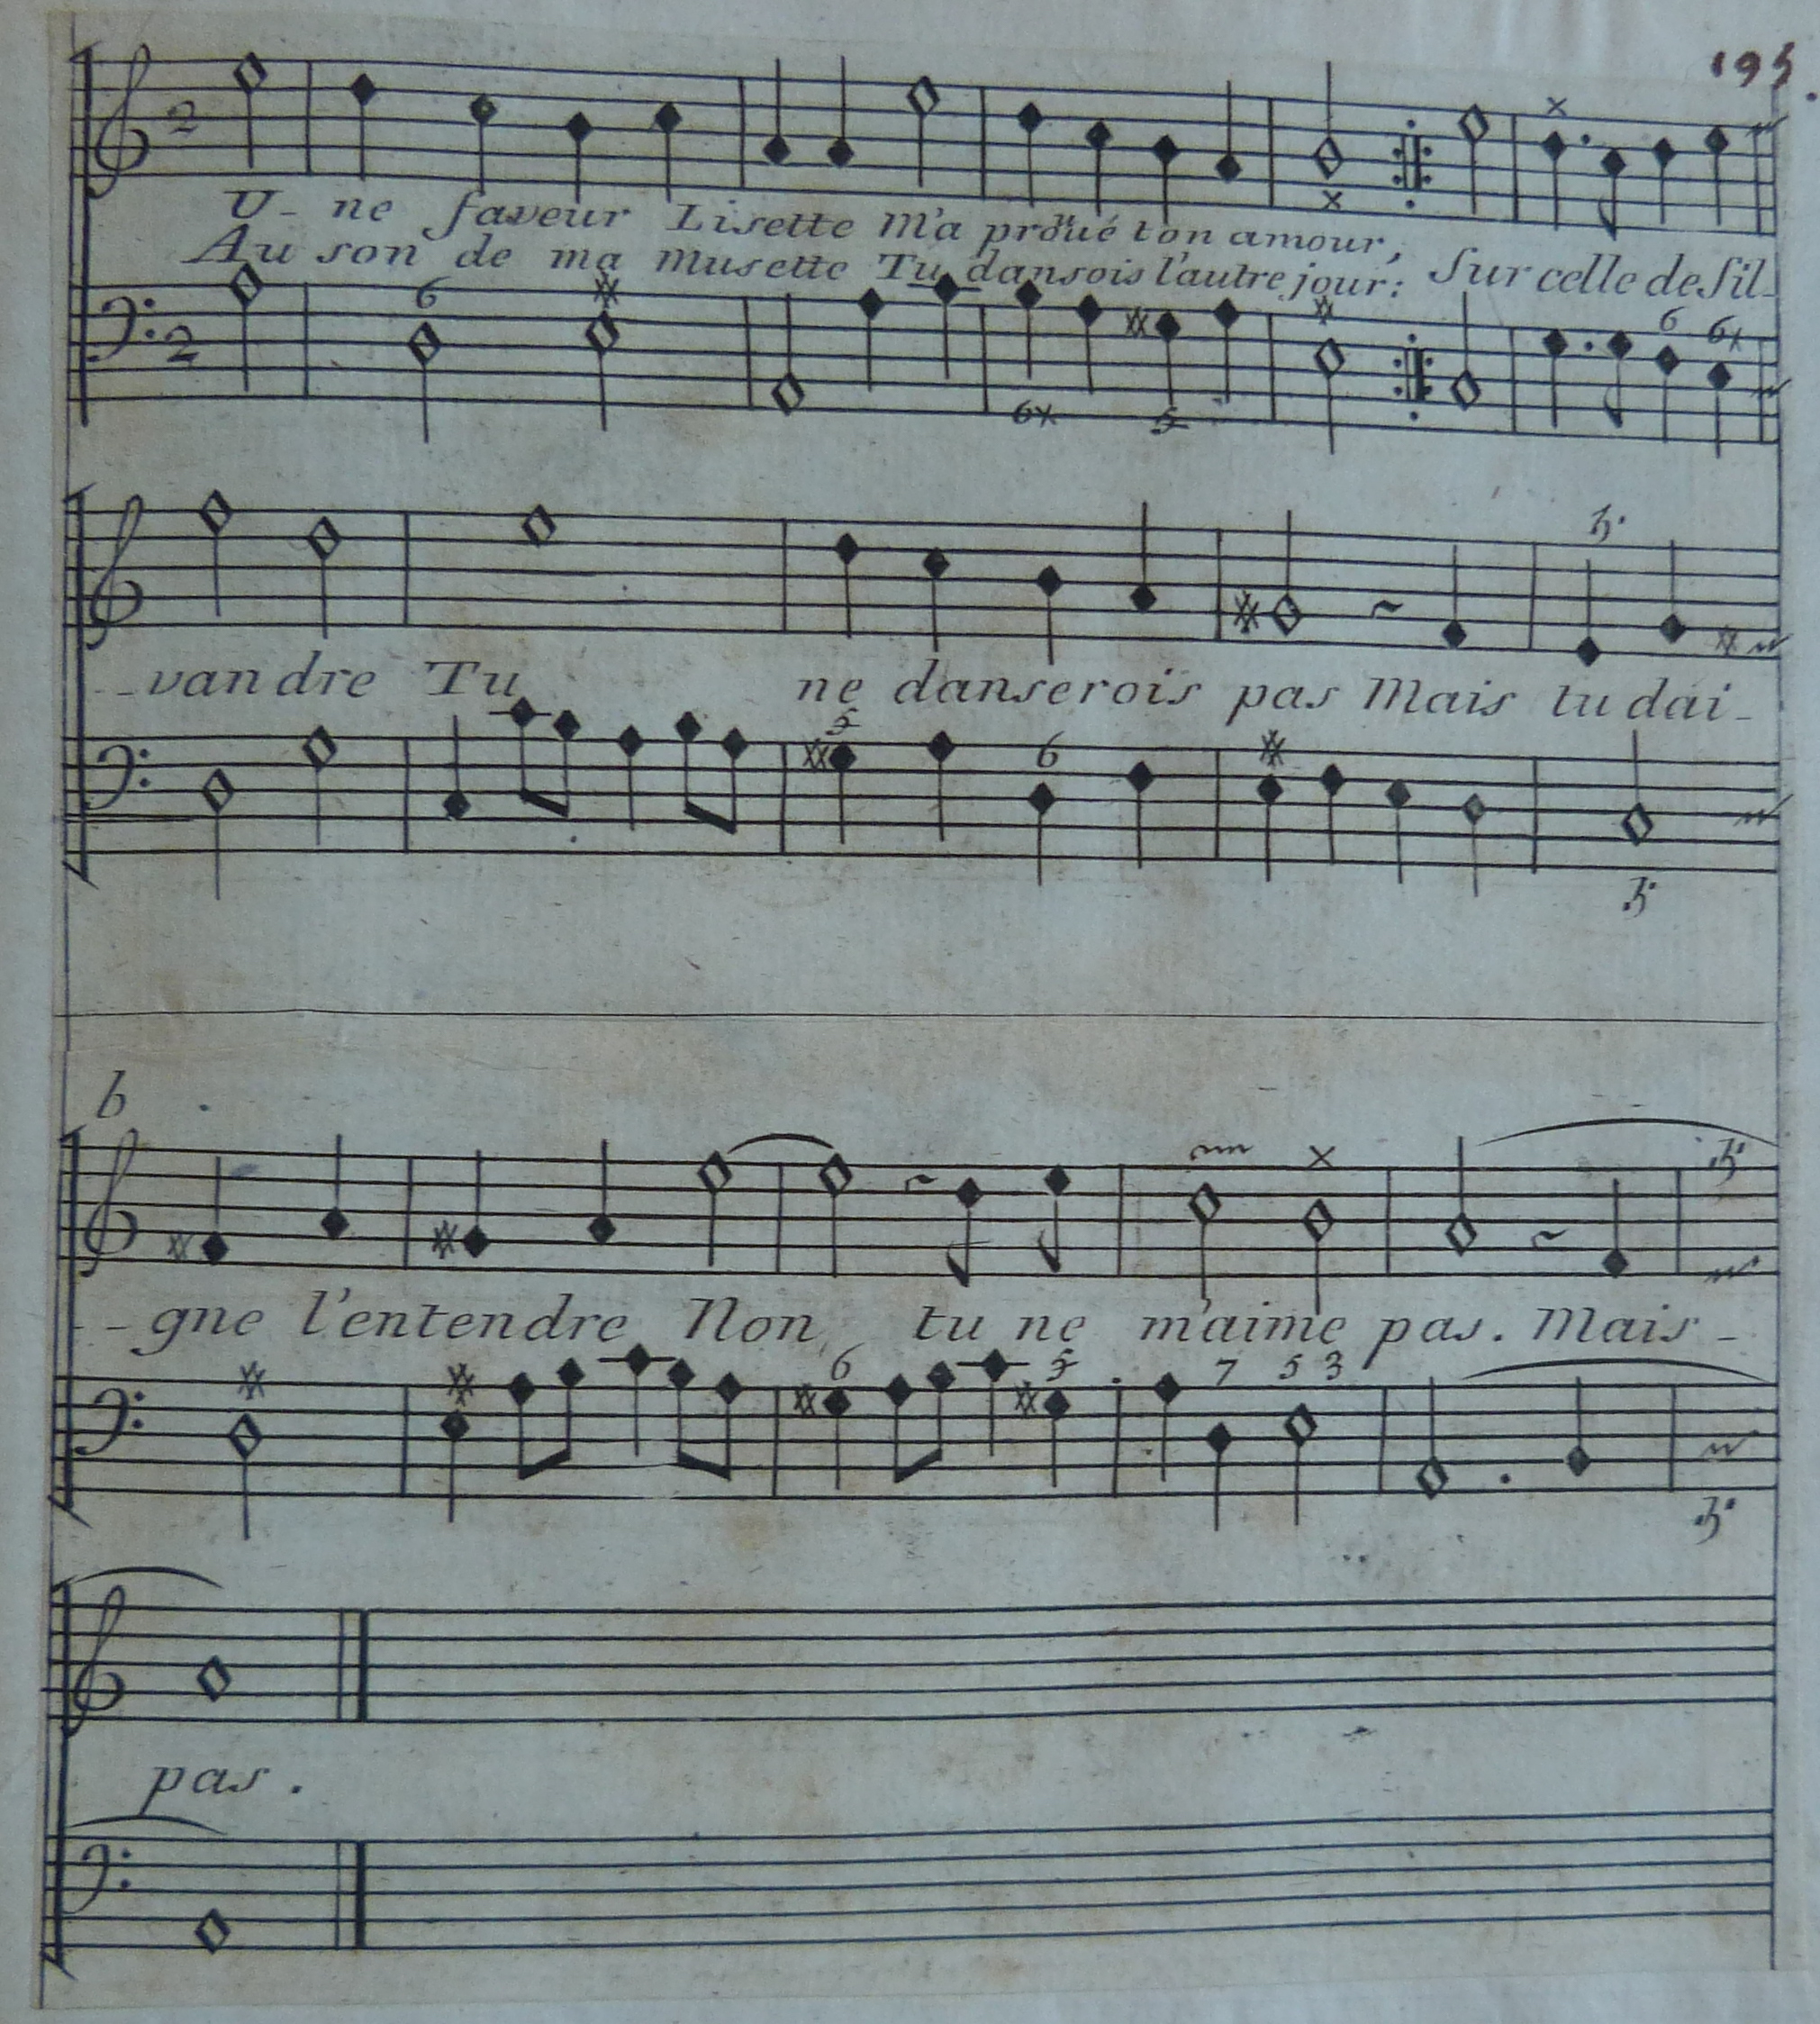 195.
2
U- ne faveur Lisette M'a proüué ton amour,
Au son de ma musette Tu dansois l'autre jour: Sur celle de Sil-
6 6 6x
2
6x 5
--vandre Tu ne danserois pas Mais tu dai-
5 6
b
--gne l'entendre Non tu ne m'aime pas. Mais-
6 5 7 5 3
pas.